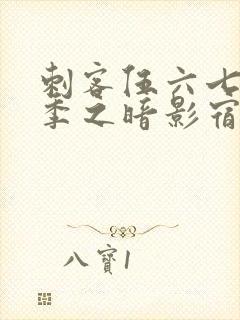 刺客伍六七
季之暗影宿
八寶1